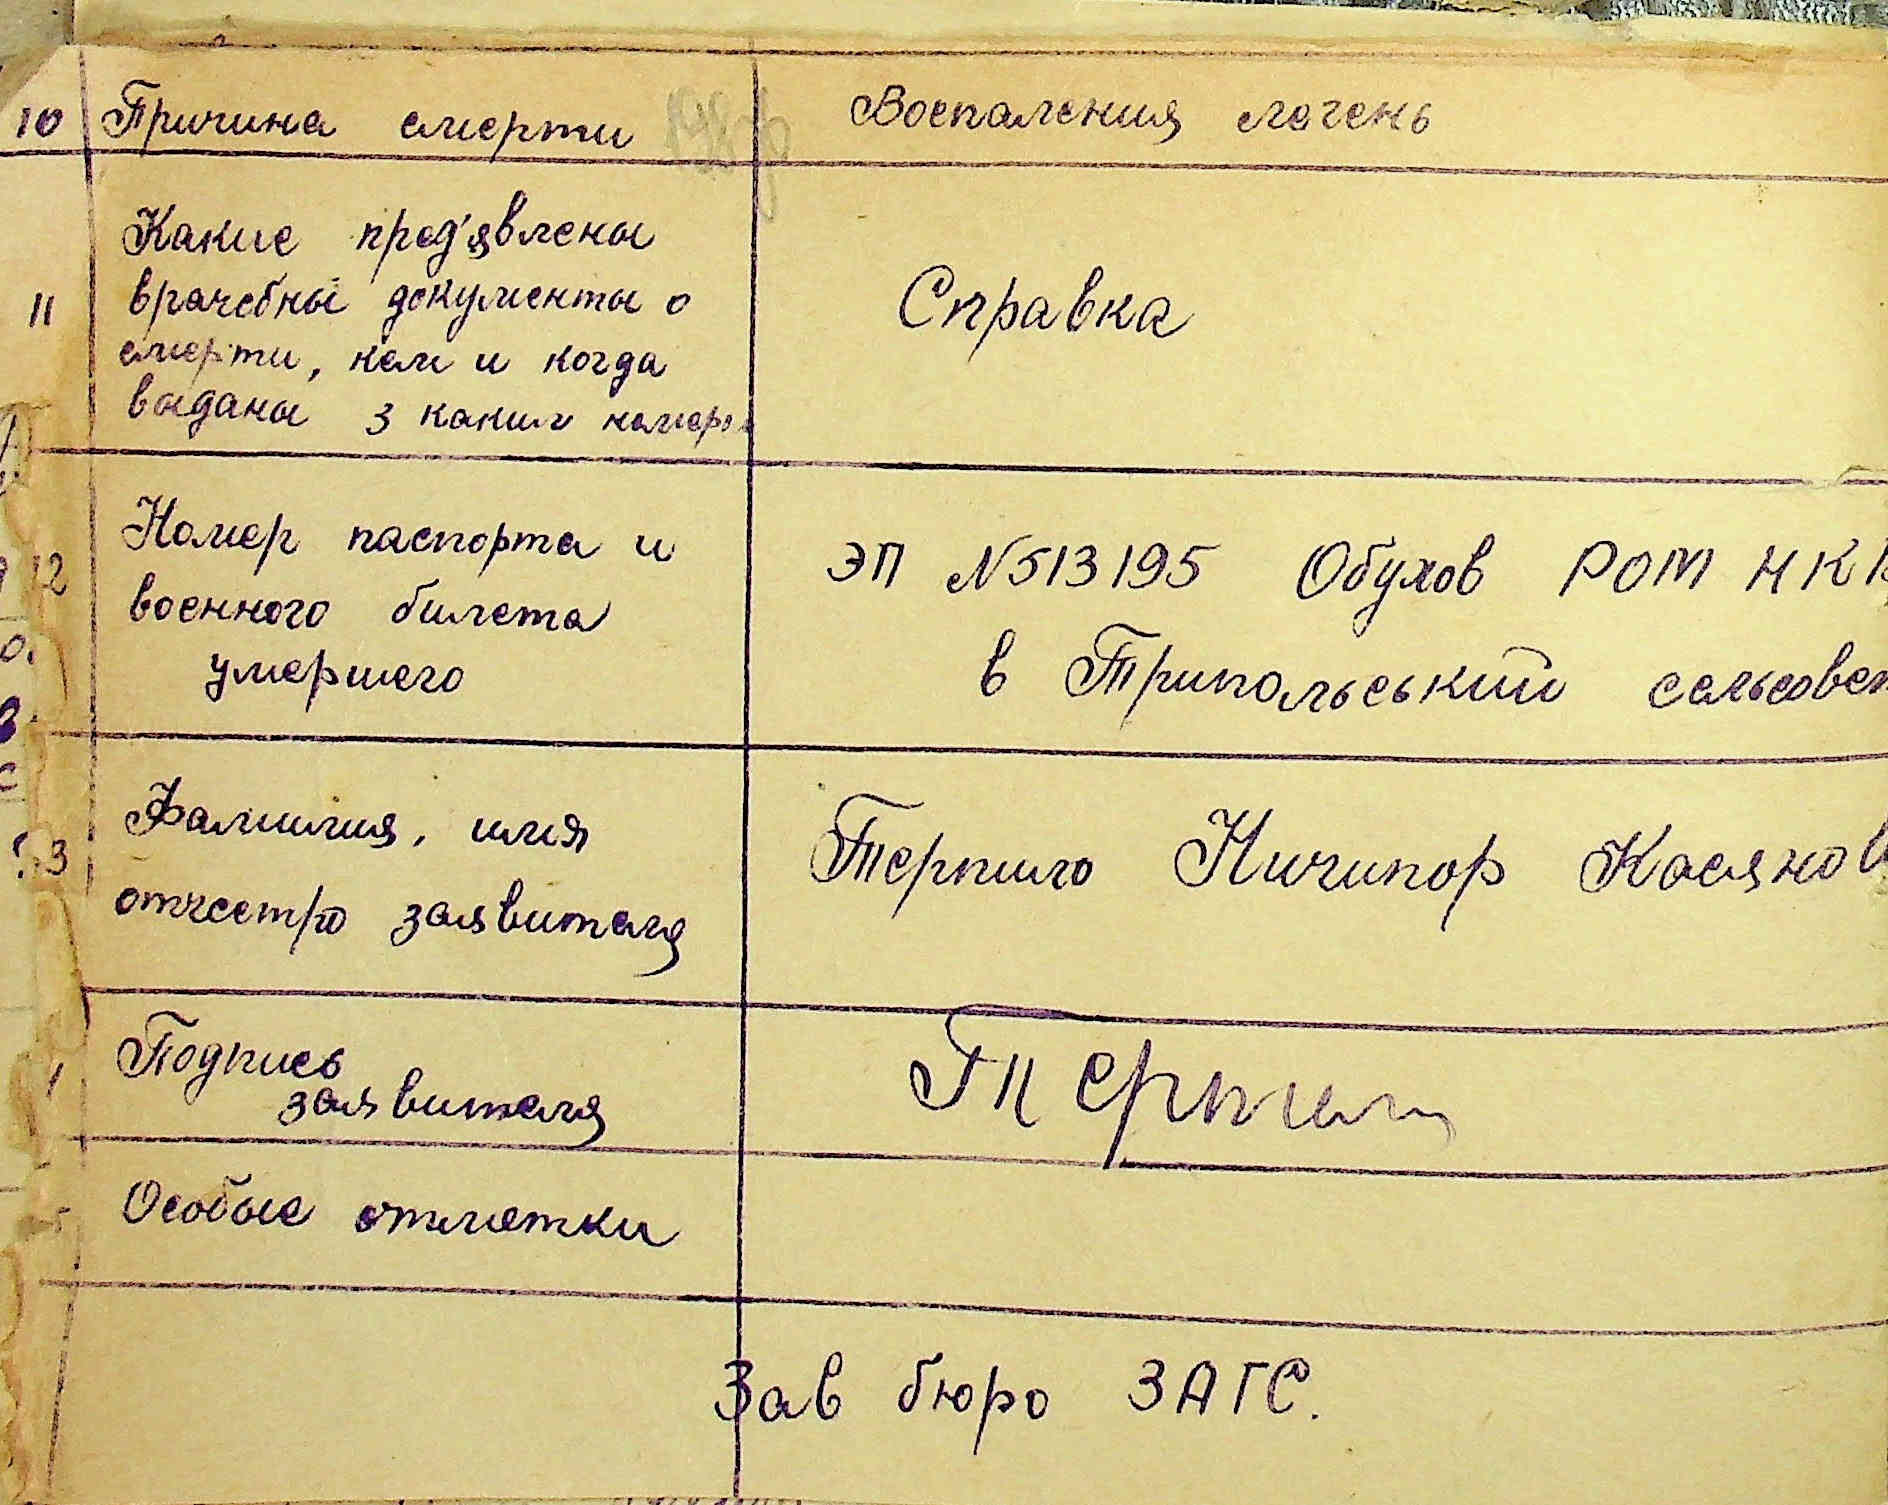 10 Причина смерти Воспаления легень
Какие пред'явлены
11 врачебны документы о Справка
смерти, кем и когда
выданы з каким номером
Номер паспорта и ЭП N513195 Обухов РОМ НКВ
12 военного билета в Трипольський сельсовет
умершего
Фамилия, имя Терпило Ничипор Касянов
13 отчество заявителя
Подпись Терпил
заявителя
Особые отметки
Зав бюро ЗАГС.